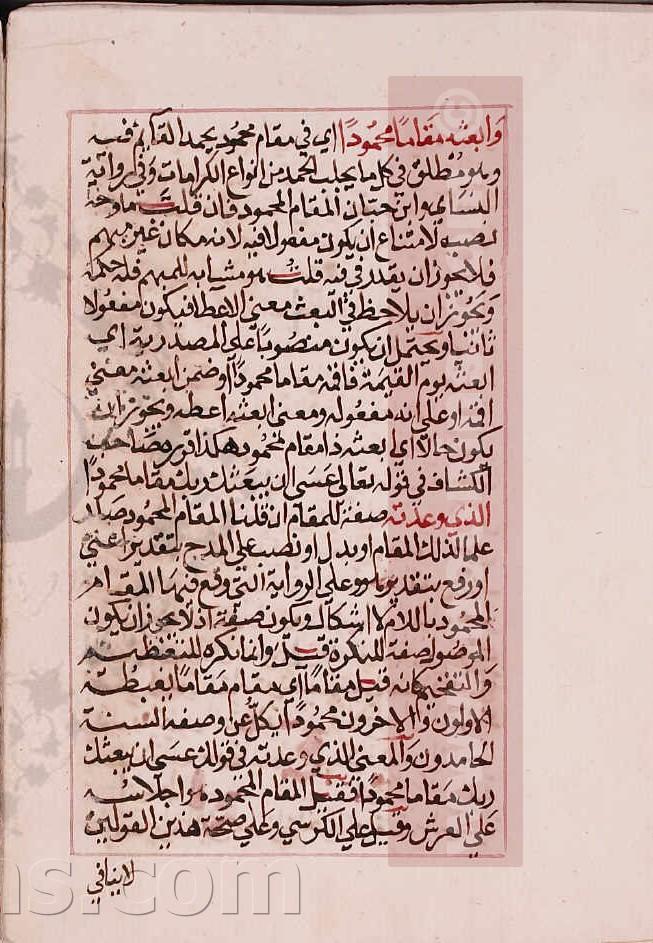 وابعثه مقاما محمودا اي في مقام محمود يحمد القائم فيه
وهو مطلق في كل ما يجلب الحمد من انواع الكرامات وفي رواية
النساي وابن حبان المقام المحمود فان قلت ما وجه
نصبه لامتناع ان يكون مفعولا فيه لانه مكان غير مبهم
فلا يجوز ان يقدر في فيه قلت هو مشابه للمبهم فله حكمه
ويجوز ان يلاحظ في البعث معنى الاعطا فيكون مفعولا
ثانيا ويحتمل ان يكون منصوبا على المصدرية اي
ابعثه يوم القيمة فاقمه مقاما محمودا او ضمن ابعثه معنى
اقمه او على انه مفعول به ومعنى ابعثه اعطه ويجوز ان
يكون حالا اي ابعثه ذا مقام محمود هكذا قرره صاحب
الكشاف في قوله تعالى عسى ان يبعثك ربك مقاما محمودا
الذي وعدته صفة للمقام ان قلنا المقام المحمود صار
علما لذلك المقام او بدل او نصب على المدح بتقدير اعني
او رفع بتقدير هو وعلى الرواية التي وقع فيها المقام
المحمود باللام لا اشكال ويكون صفة اذ لا يجوز ان يكون
الموصول صفة للنكرة قيل وانما نكره للتعظيم
والتفخيم كانه قيل مقاما اي مقام مقاما يغبطه
الاولون والاخرون محمودا يكل عن وصفه السنة
الحامدون والمعنى الذي وعدته في قولك عسى ان يبعثك
ربك مقاما محمودا فقيل المقام المحمود هو اجلاسه
على العرش وقيل على الكرسي وعلى صحة هذين القولين
لا ينافي
ns.com